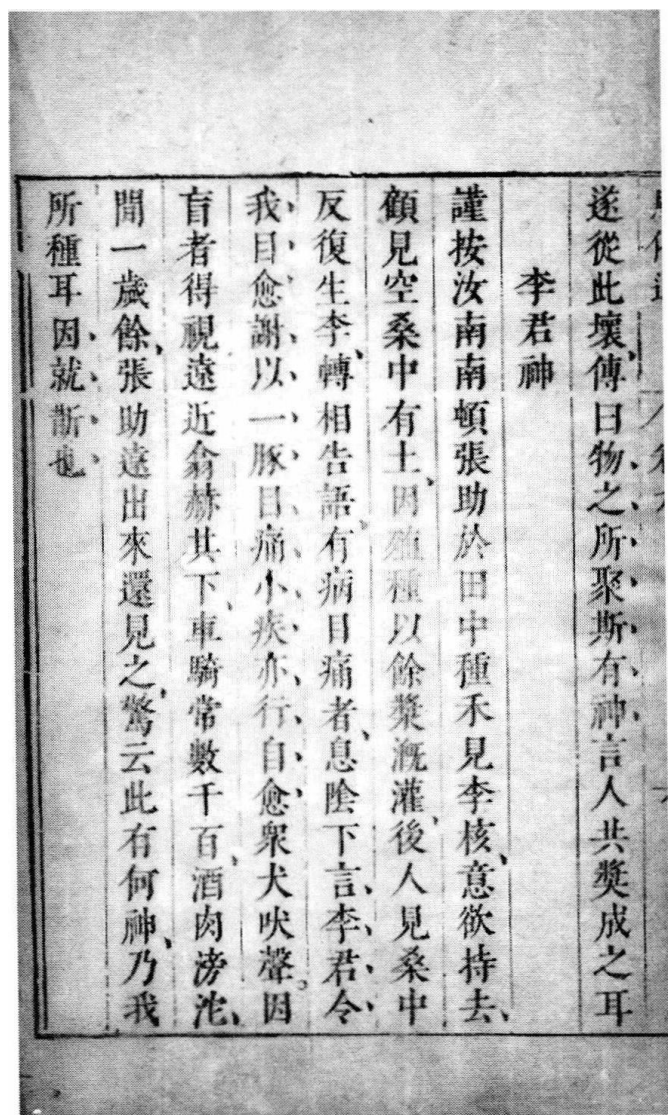 遂從此壞傳曰物之所聚斯有神言人共奬成之耳
李君神
謹按汝南南頓張助於田中種禾見李核意欲持去
顧見空桑中有土因殖種以餘漿漑灌後人見桑中
反復生李轉相告語有病目痛者息陰下言李君令
我目愈謝以一豚目痛小疾亦行自愈衆犬吠聲因
盲者得視遠近翕赫其下車騎常數千百酒肉滂沱
閒一歲餘張助遠出來還見之驚云此有何神乃我
所種耳因就斮也